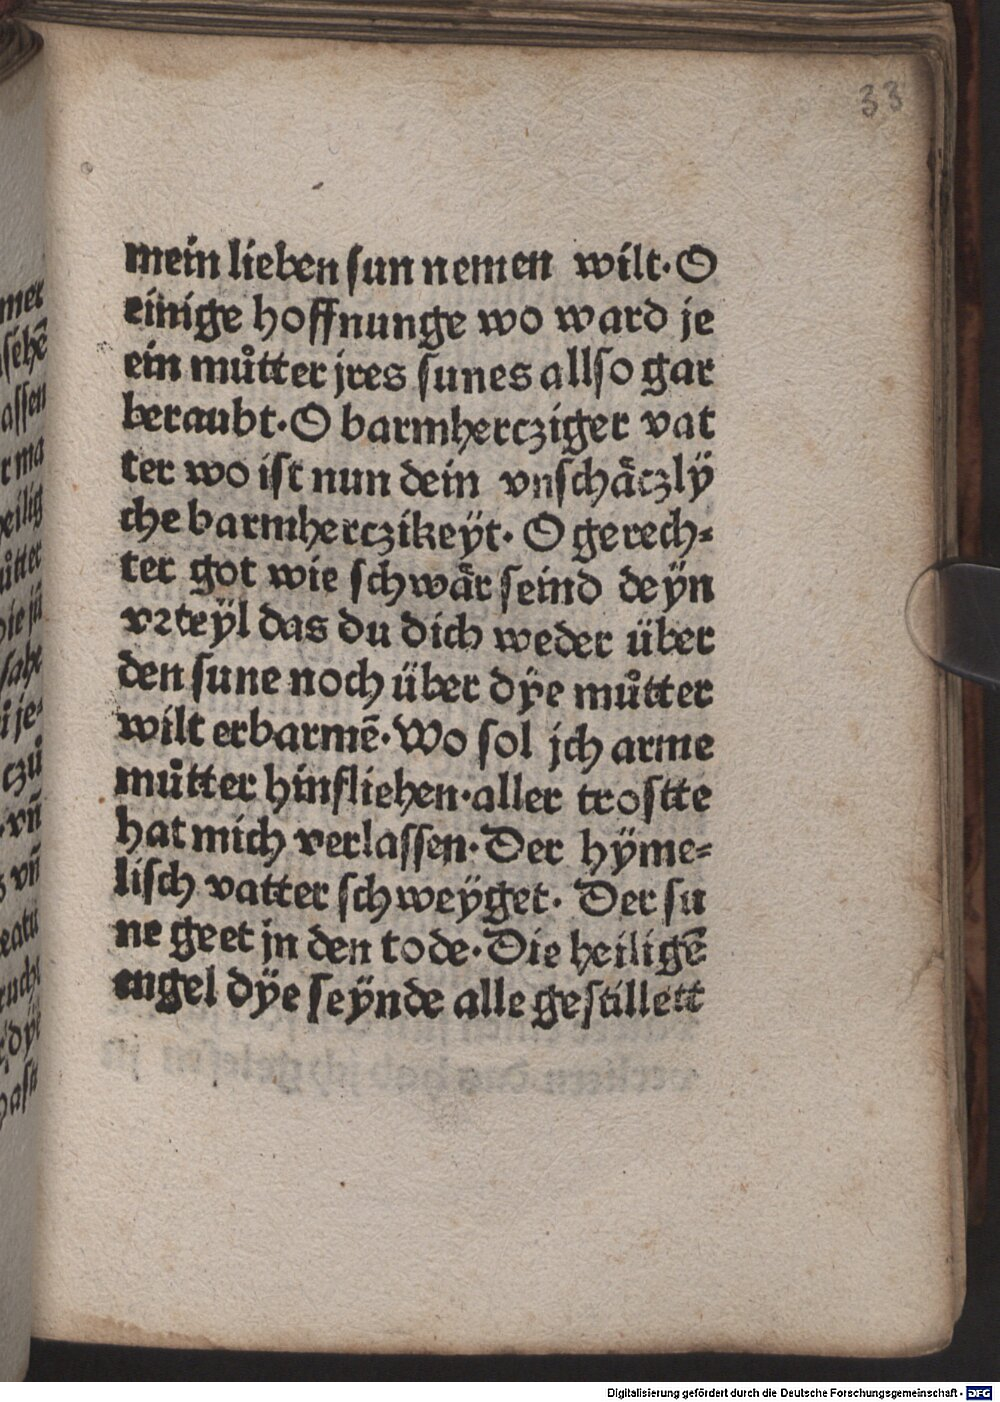 33
mein lieben sun nemen wilt. O
einige hoffnunge wo ward je
ein můtter jres sunes allso gar
beraubt. O barmhercziger vat
ter wo ist nun dein vnschäczlÿ
che barmherczikeÿt. O gerech-
ter got wie schwär seind deÿn
vrteÿl das du dich weder über
den sune noch über dÿe můtter
wilt erbarmē. Wo sol jch arme
můtter hinfliehen. aller trostte
hat mich verlassen. Der hÿme-
lisch vatter schweÿget. Der su
ne geet jn den tode. Die heiligē
engel dÿe seÿnde alle gestillett
Digitalisierung gefördert durch die Deutsche Forschungsgemeinschaft - DFG